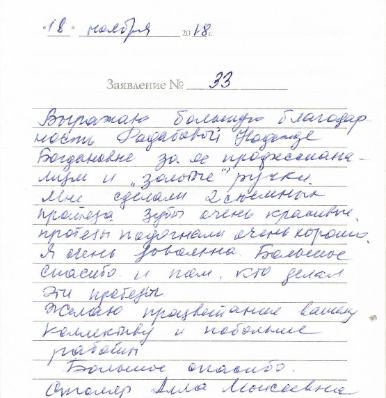 "18" ноября 2018 г.
Заявление № 33
Выражаю большую благодар
ность Радабовой Надежде
Богдановне за ее профессиона-
лизм и "золотые" ручки.
Мне сделали 2 съемных
протеза зубы очень красивые,
протезы подогнали очень хорошо.
Я очень довольна. Большое
спасибо и там, кто делал
эти протезы
Желаю процветание вашему
коллективу и побольше
работы
Большое спасибо.
Столяр Алла Моисеевна